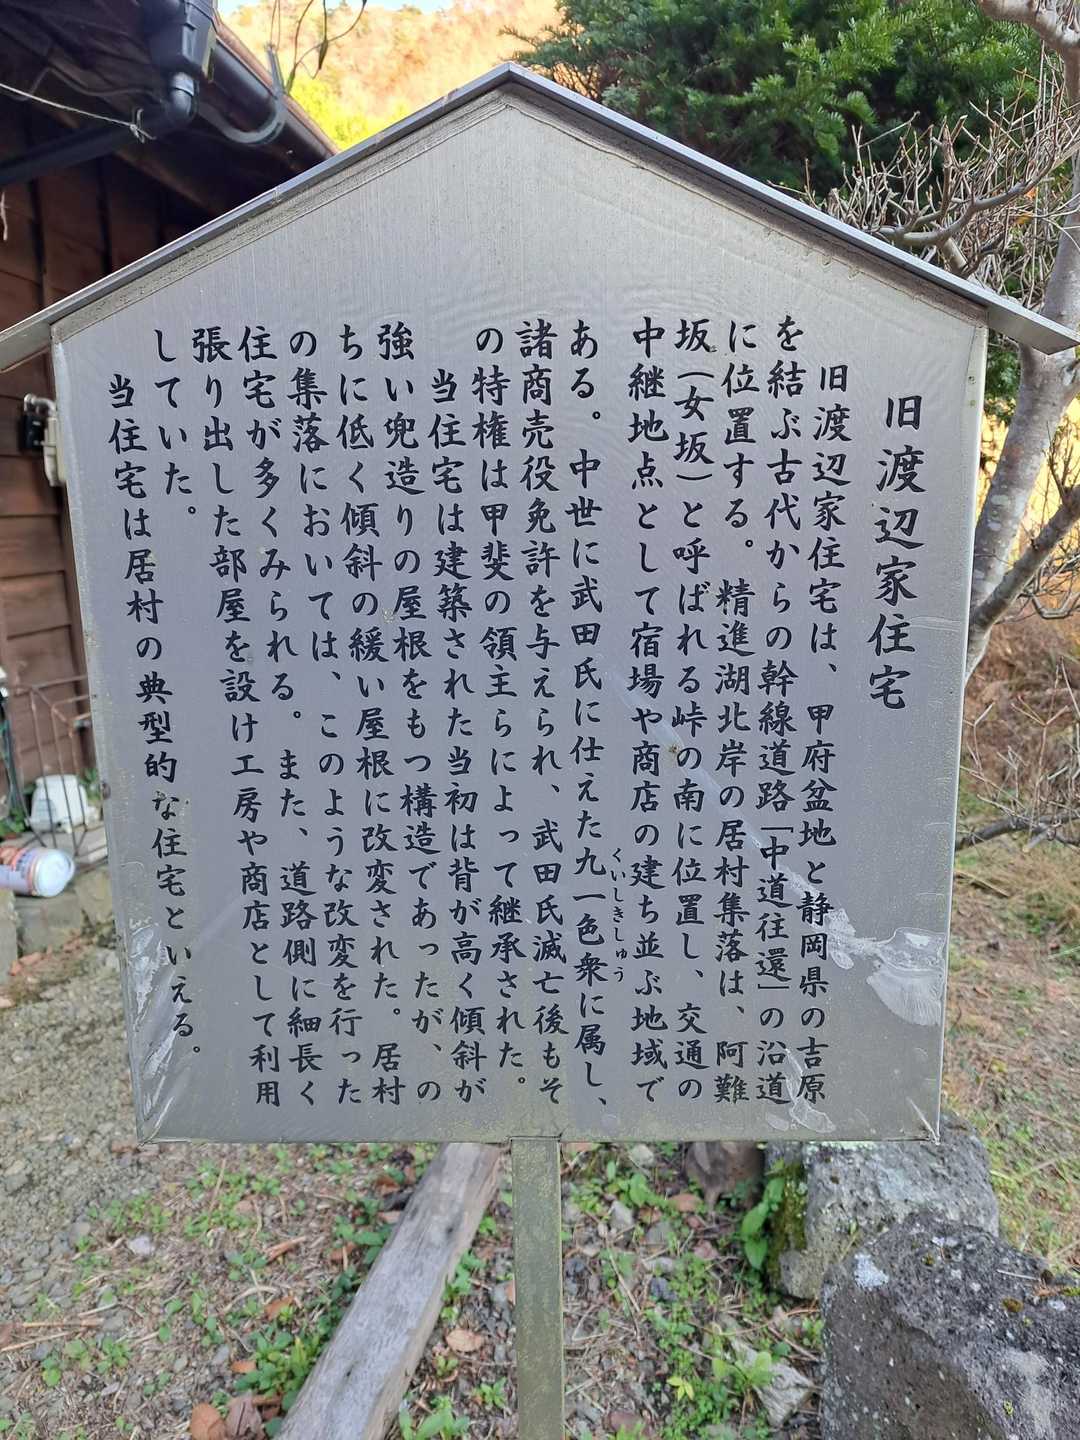 旧渡辺家住宅
旧渡辺家住宅は、甲府盆地と静岡県の吉原
を結ぶ古代からの幹線道路「中道往還」の沿道
に位置する。精進湖北岸の居村集落は、阿難
坂(女坂)と呼ばれる峠の南に位置し、交通の
中継地点として宿場や商店の建ち並ぶ地域で
ある。中世に武田氏に仕えた九一色衆に属し、
くいしきしゅう
諸商売役免許を与えられ、武田氏滅亡後もそ
の特権は甲斐の領主らによって継承された。
当住宅は建築された当初は背が高く傾斜が
強い兜造りの屋根をもつ構造であったが、の
ちに低く傾斜の緩い屋根に改変された。居村
の集落においては、このような改変を行った
住宅が多くみられる。また、道路側に細長く
張り出した部屋を設け工房や商店として利用
していた。
当住宅は居村の典型的な住宅といえる。